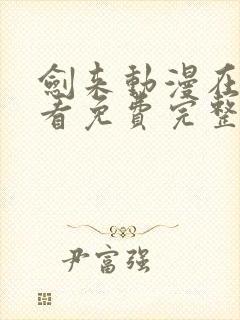 劍来動漫在
看免費完整
尹富强